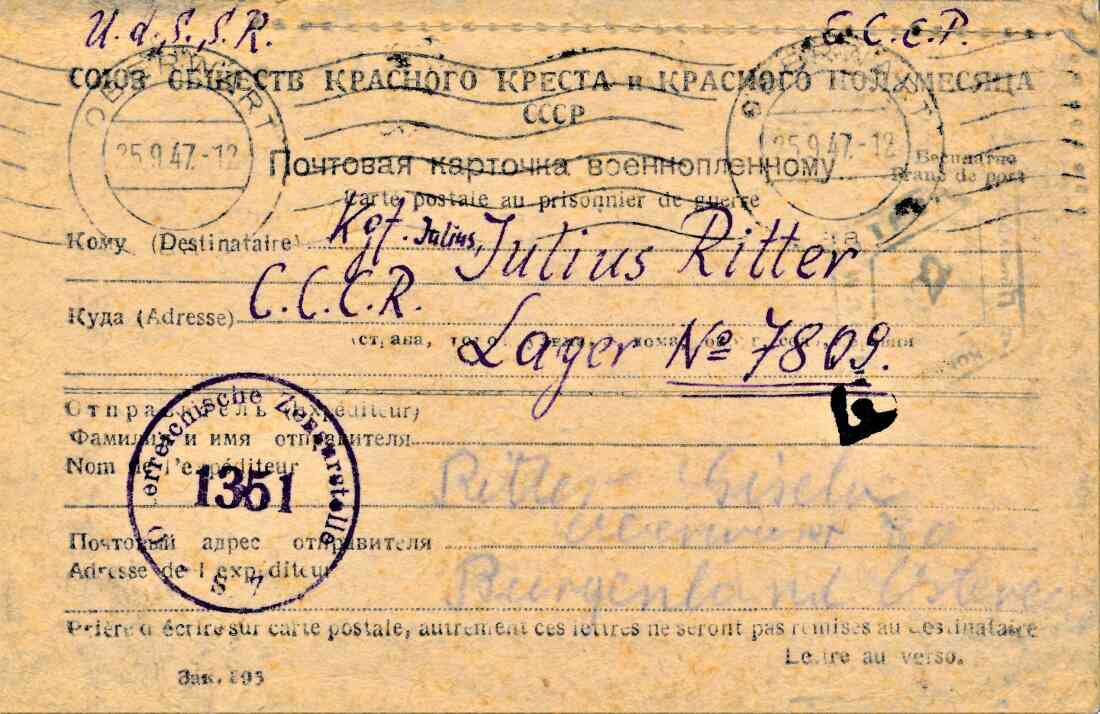 U.d.S.S.R. С.С.С.Р.
СОЮЗ ОБЩЕСТВ КРАСНОГО КРЕСТА и КРАСНОГО ПОЛУМЕСЯЦА
СССР
OBERWART OBERWART
25.9.47.-12 25.9.47.-12
Почтовая карточка военнопленному
Бесплатно
Franc de port
Carte postale au prisonnier de guerre
Кому (Destinataire) Kgf. Julius, Julius Ritter
Куда (Adresse) C.C.C.R.
Lager No 7809.
Отправитель (Expéditeur)
Фамилия и имя отправителя
Nom de l'expéditeur
Ritter Gisela
Österreichische Zensurstelle
1351
S 7
Почтовый адрес отправителя
Oberwart 80
Adresse de l'expéditeur
Burgenland
Prière d'écrire sur carte postale, autrement ces lettres ne seront pas remises au destinataire
Lettre au verso.
Зак. 195